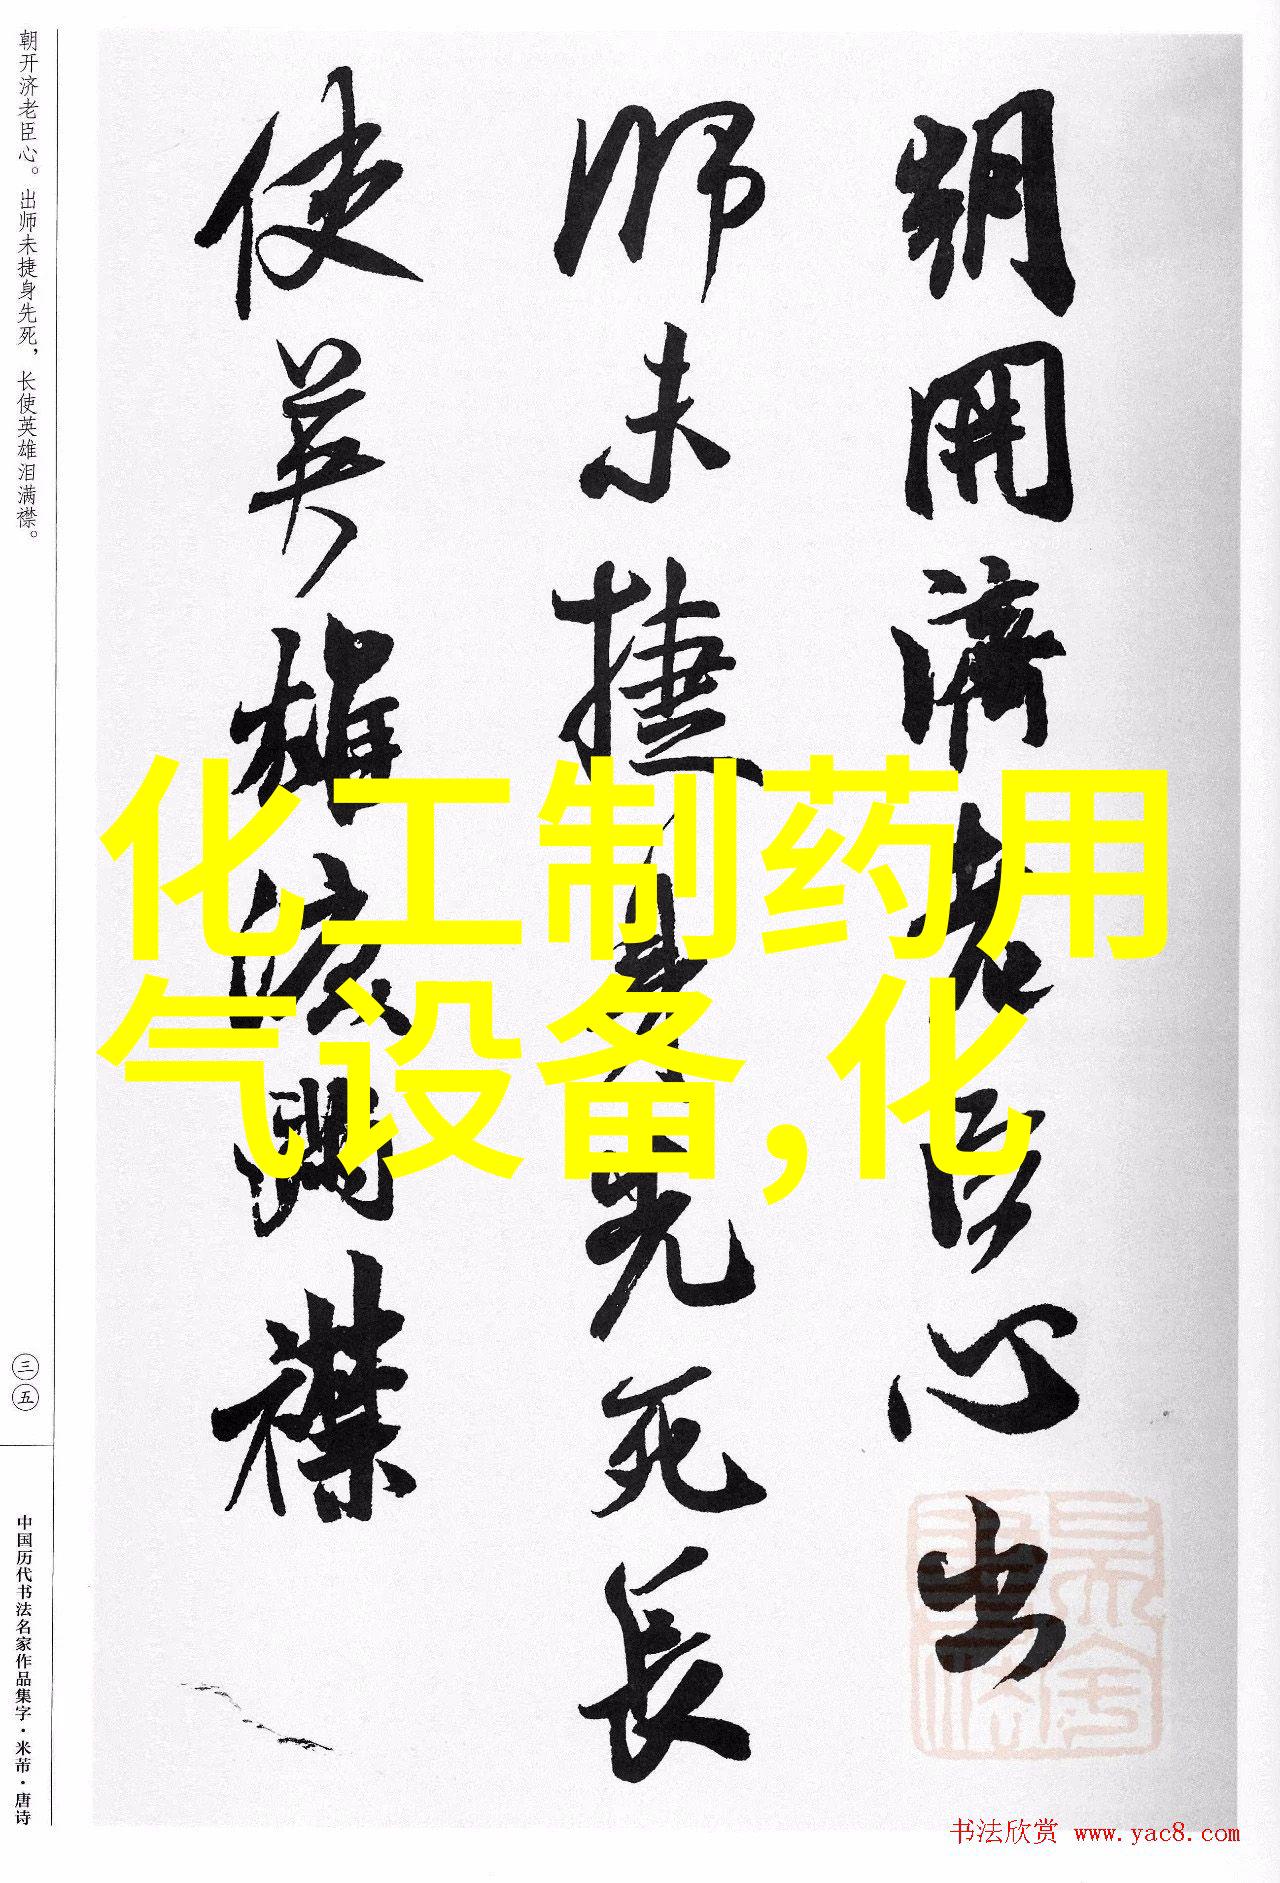 朝开济老臣心。出师未捷身先死，长使英雄泪满襟。
三五
中国历代书法名家作品集字·米芾·唐诗
朝開濟老臣心出
師未捷身先死長
使英雄泪滿襟
化工制药用
气设备,化
书法欣赏 www.yac8.com